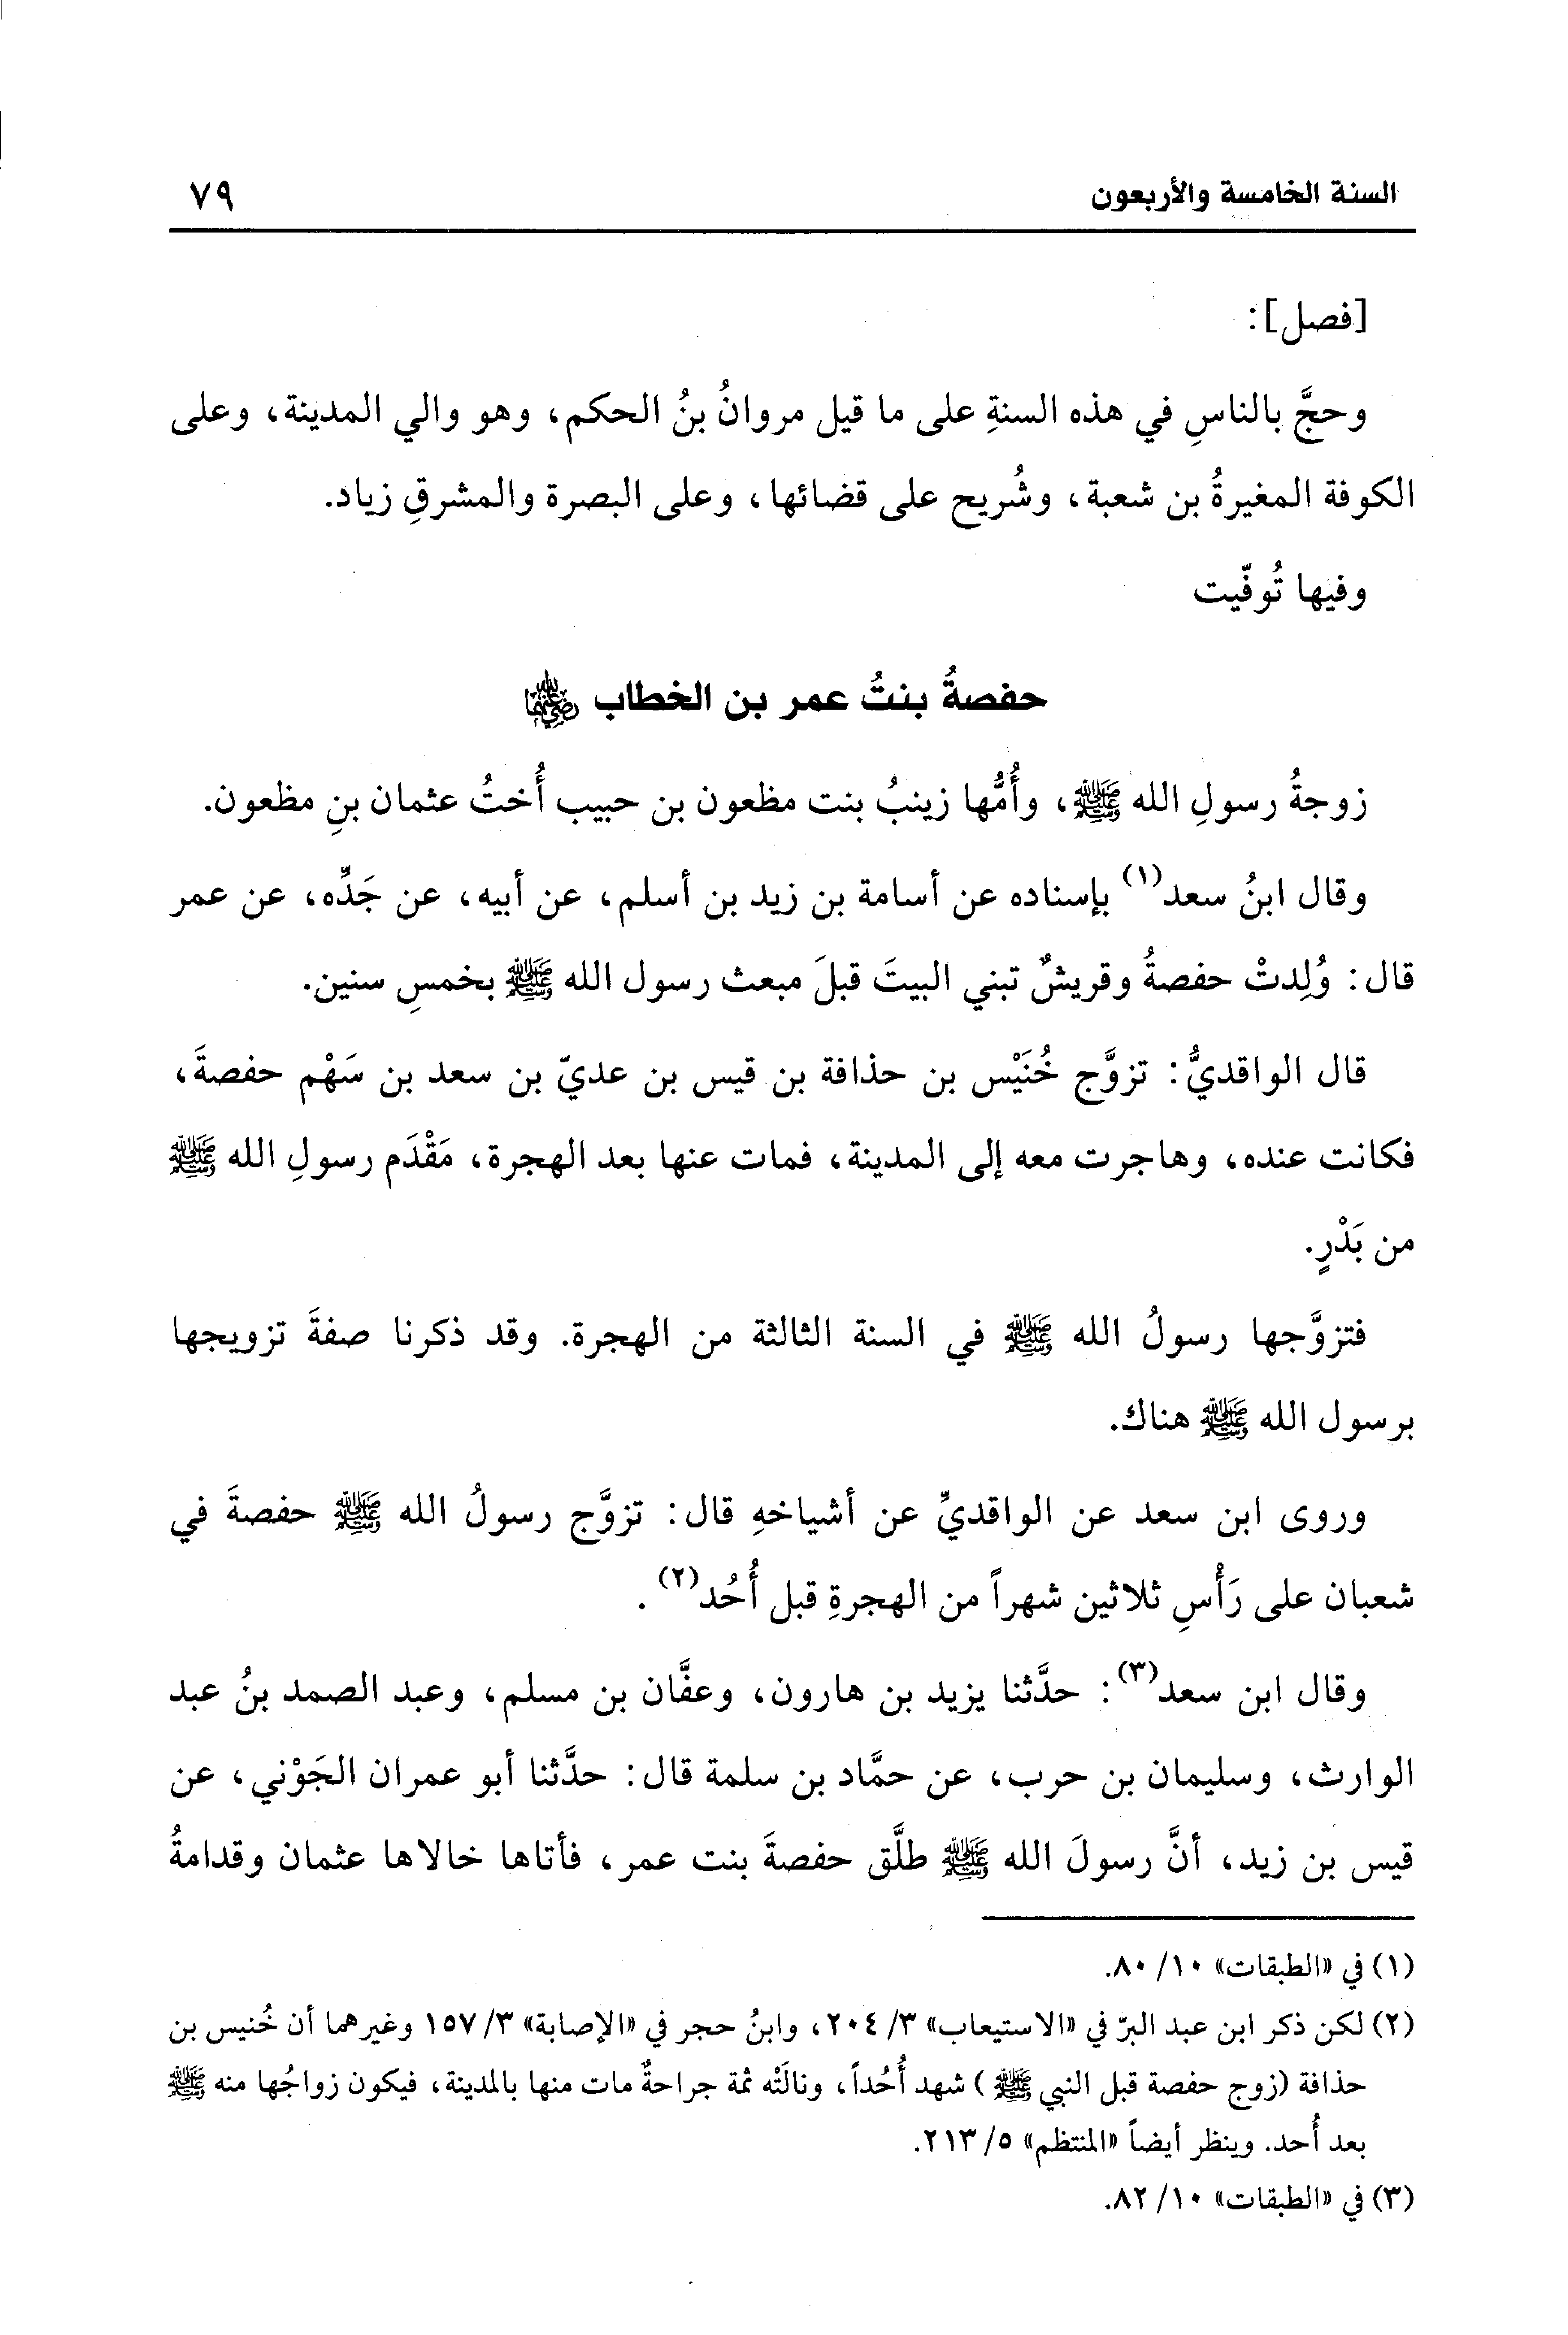 السنة الخامسة والأربعون ٧٩
[فصل]:
وحجَّ بالناسِ في هذه السنةِ على ما قيل مروانُ بنُ الحكم، وهو والي المدينة، وعلى
الكوفة المغيرةُ بن شعبة، وشُريح على قضائها، وعلى البصرة والمشرقِ زياد.
وفيها تُوفّيت
حفصةُ بنتُ عمر بن الخطاب رضي الله عنهما
زوجةُ رسولِ الله ﷺ، وأُمُّها زينبُ بنت مظعون بن حبيب أُختُ عثمان بنِ مظعون.
وقال ابنُ سعد(١) بإسناده عن أسامة بن زيد بن أسلم، عن أبيه، عن جَدِّه، عن عمر
قال: وُلِدتْ حفصةُ وقريشٌ تبني البيتَ قبلَ مبعث رسول الله ﷺ بخمسِ سنين.
قال الواقديُّ: تزوَّج خُنَيْس بن حذافة بن قيس بن عديّ بن سعد بن سَهْم حفصةَ،
فكانت عنده، وهاجرت معه إلى المدينة، فمات عنها بعد الهجرة، مَقْدَم رسولِ الله ﷺ
من بَدْرٍ.
فتزوَّجها رسولُ الله ﷺ في السنة الثالثة من الهجرة. وقد ذكرنا صفةَ تزويجها
برسول الله ﷺ هناك.
وروى ابن سعد عن الواقديِّ عن أشياخهِ قال: تزوَّج رسولُ الله ﷺ حفصةَ في
شعبان على رَأْسِ ثلاثين شهراً من الهجرةِ قبل أُحُد(٢).
وقال ابن سعد(٣): حدَّثنا يزيد بن هارون، وعفَّان بن مسلم، وعبد الصمد بنُ عبد
الوارث، وسليمان بن حرب، عن حمَّاد بن سلمة قال: حدَّثنا أبو عمران الجَوْني، عن
قيس بن زيد، أنَّ رسولَ الله ﷺ طلَّق حفصةَ بنت عمر، فأتاها خالاها عثمان وقدامةُ
(١) في «الطبقات» ١٠/ ٨٠.
(٢) لكن ذكر ابن عبد البرّ في «الاستيعاب» ٣/ ٢٠٤، وابنُ حجر في «الإصابة» ٣/ ١٥٧ وغيرهما أن خُنيس بن
حذافة (زوج حفصة قبل النبي ﷺ) شهد أُحُداً، ونالَتْه ثمة جراحةٌ مات منها بالمدينة، فيكون زواجُها منه ﷺ
بعد أُحد. وينظر أيضاً «المنتظم» ٥/ ٢١٣.
(٣) في «الطبقات» ١٠/ ٨٢.